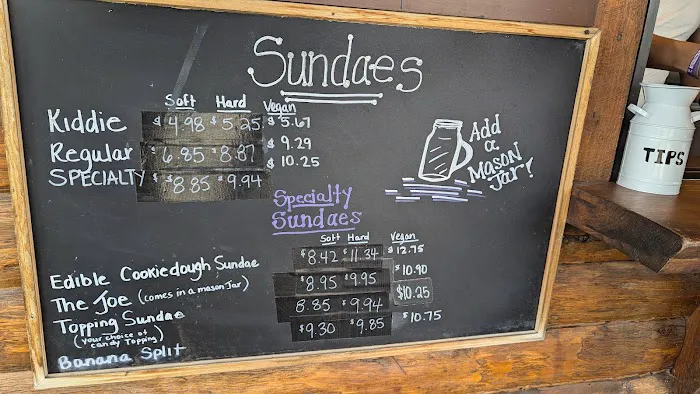 Sundaes
Soft Hard Vegan
Kiddie $4.98 $5.25 $5.67
Regular $6.85 $8.87 $9.29
SPECIALTY $8.85 $9.94 $10.25
Add
a
Mason
Jar!
TIPS
Specialty
Sundaes
Soft Hard Vegan
Edible Cookiedough Sundae $8.42 $11.34 $12.75
The Joe (comes in a mason Jar) $8.95 $9.95 $10.90
Topping Sundae 8.85 $9.94 $10.25
(your choice of
candy Topping)
Banana Split $9.30 $9.85 $10.75